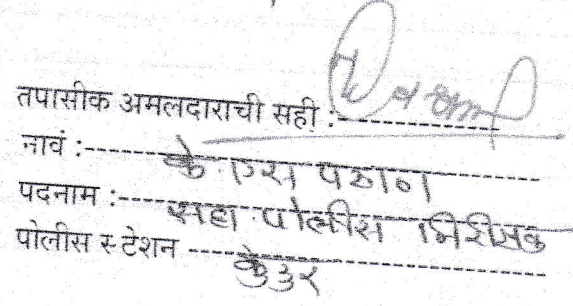 तपासीक अमलदाराची सही :-
नावं :- के. एस पठाण
पदनाम :- सहा पोलीस निरीक्षक
पोलीस स्टेशन --